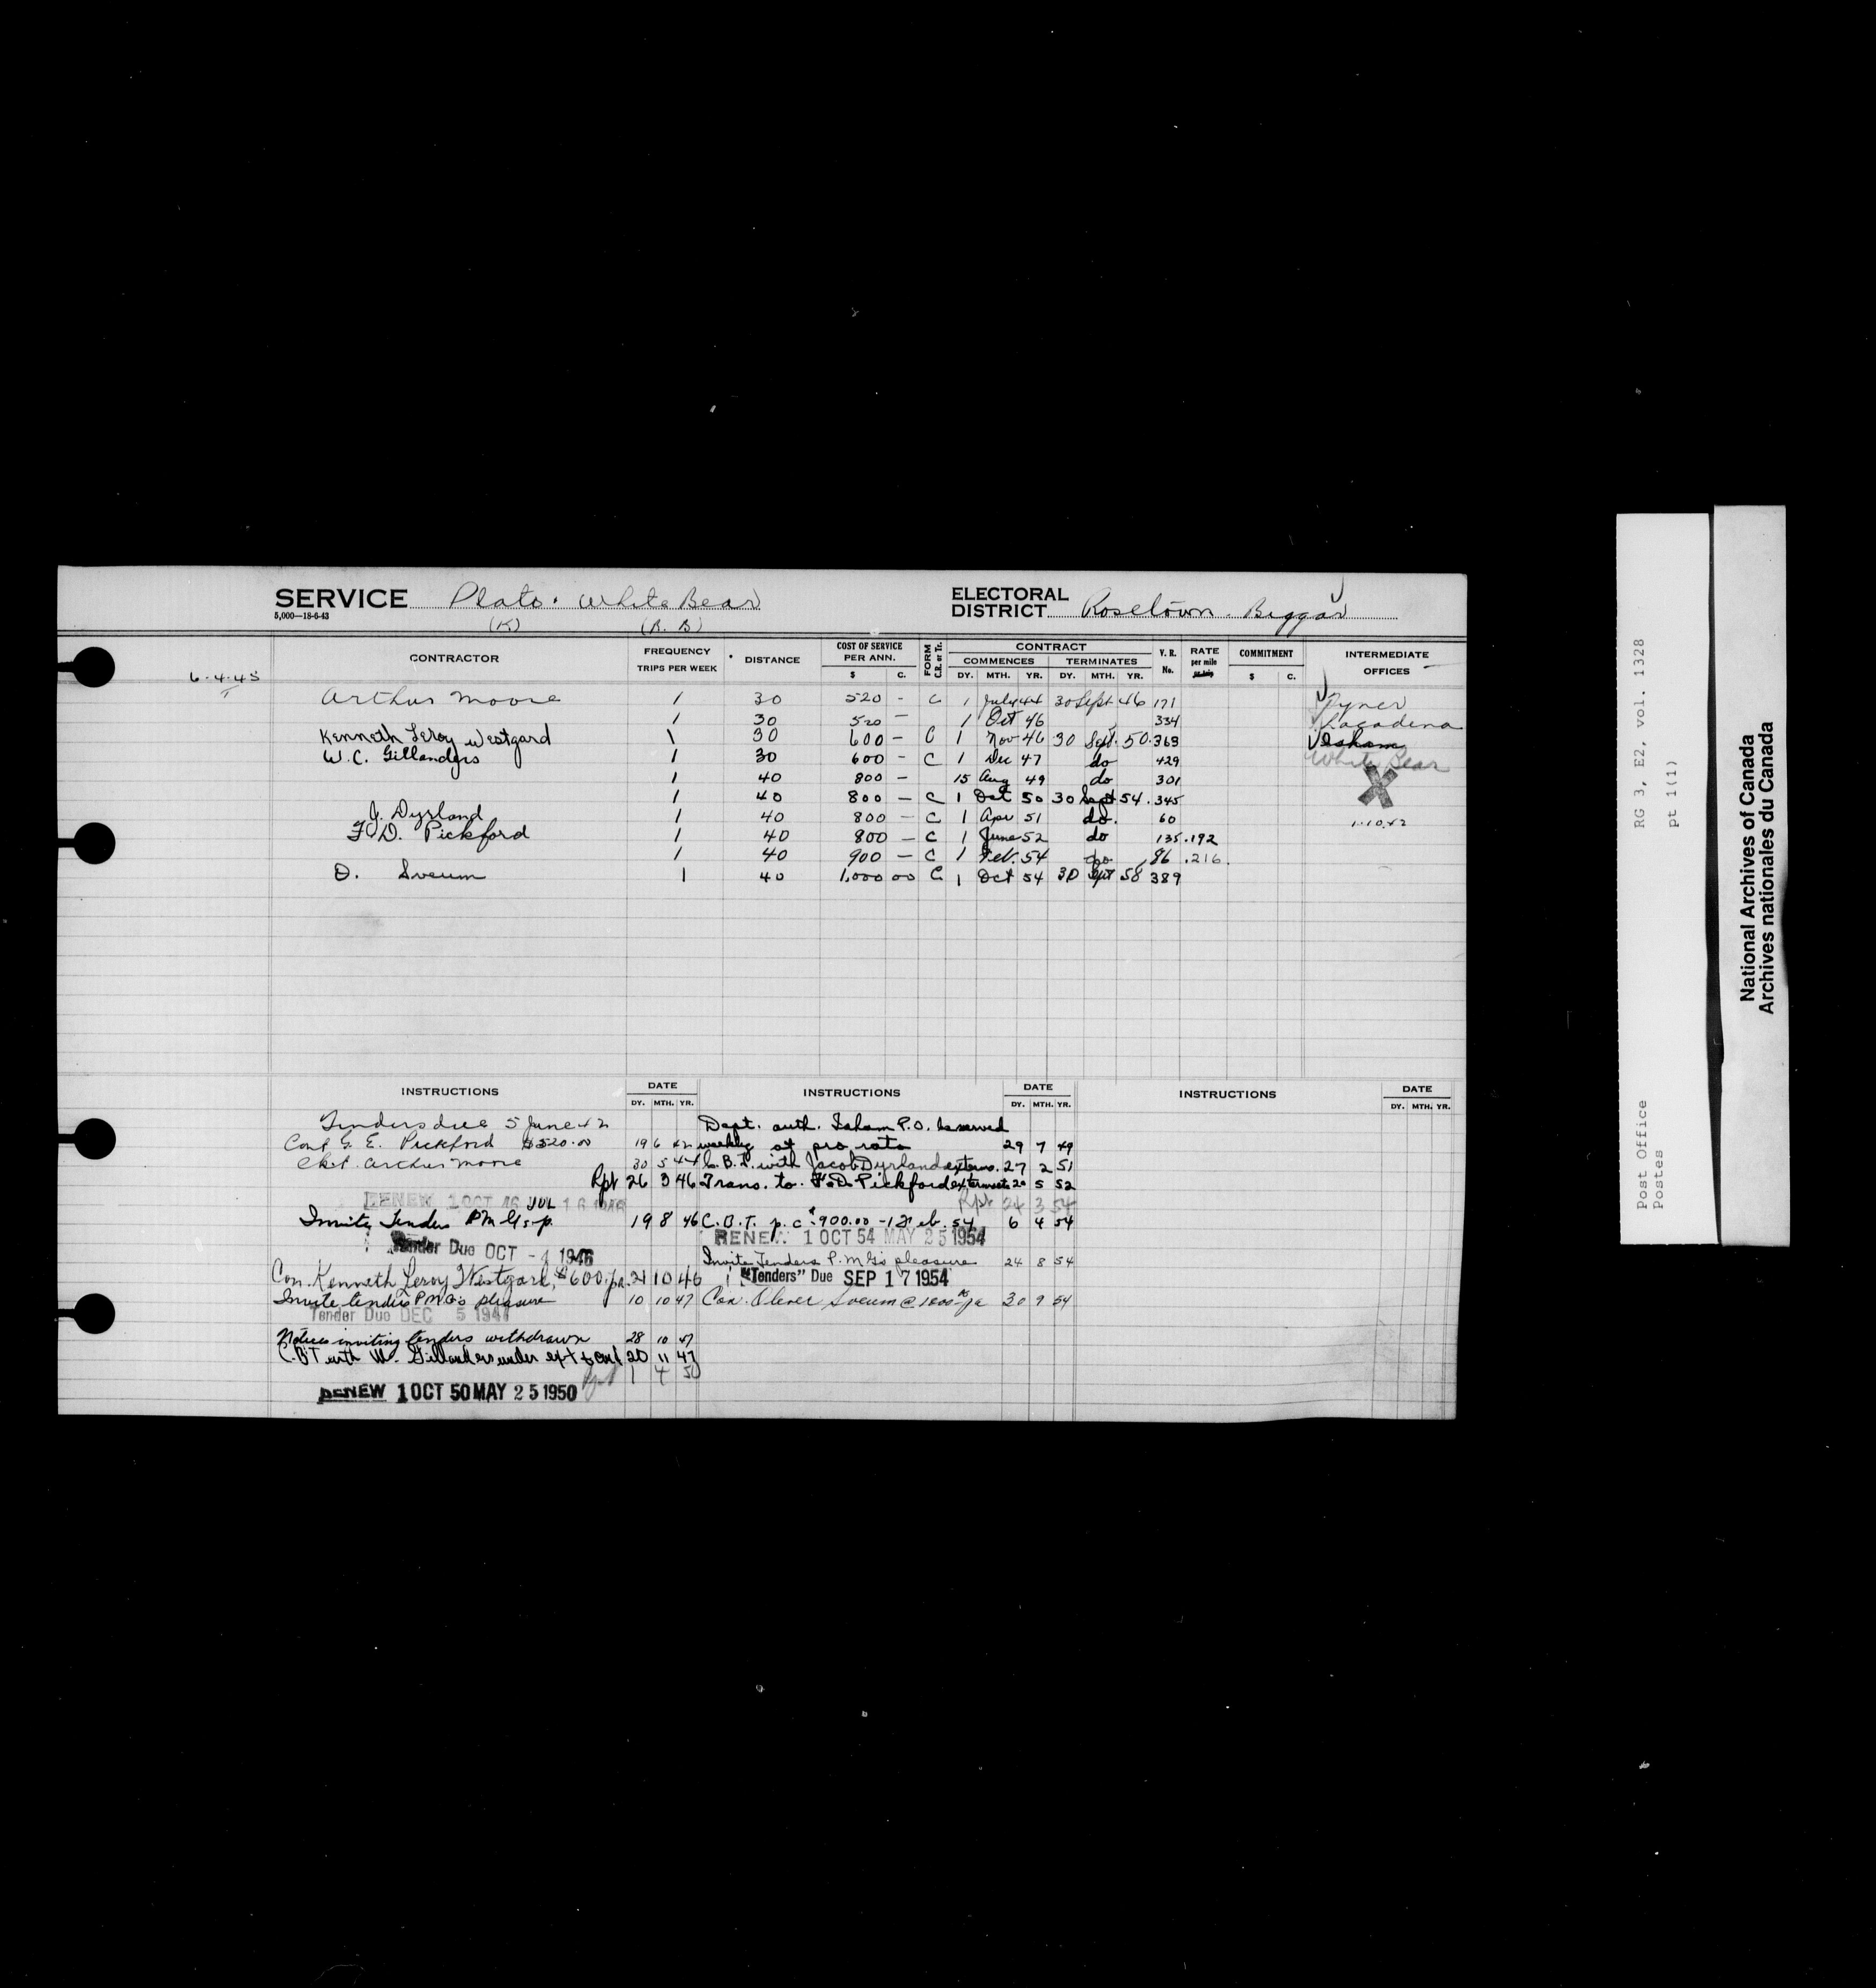 SERVICE Plato. White Bear
5,000—18-6-43
(K) (B. B)
ELECTORAL DISTRICT Rosetown. Biggar
CONTRACTOR FREQUENCY TRIPS PER WEEK DISTANCE COST OF SERVICE PER ANN. $ C. FORM C.R. or Tr. CONTRACT COMMENCES DY. MTH. YR. TERMINATES DY. MTH. YR. V. R. No. RATE per mile COMMITMENT $ C. INTERMEDIATE OFFICES
6-4-45
Arthur Moore 1 30 520 - C 1 July 44 30 Sept 46 171 Tyner
1 30 520 — 1 Oct 46 334 Lacadena
Kenneth Leroy Westgard 1 30 600 — C 1 Nov 46 30 Sept. 50. 369 Isham
W. C. Gillanders 1 30 600 — C 1 Dec 47 do 429 White Bear
1 40 800 — 15 Aug 49 do 301 X
1 40 800 — C 1 Oct 50 30 Sept 54. 345
J. Dyrland 1 40 800 — C 1 Apr 51 do. 60 1.10.42
F. D. Pickford 1 40 800 — C 1 June 52 do 135 .192
1 40 900 — C 1 Feb. 54 do 86 .216.
O. Sveum 1 40 1,000 00 C 1 Oct 54 30 Sept 58 389
INSTRUCTIONS DATE DY. MTH. YR.
Tenders due 5 June 42
Cont G. E. Pickford $520.00 19 6 42
Ckt. Arthur Moore 30 5 44
Rpt 26 3 46
RENEW 1 OCT 46 JUL 16 1946
Invite Tenders P.M.G's p. 19 8 46
Tender Due OCT - 4 1946
Con. Kenneth Leroy Westgard, $600. pa. 21 10 46
Invite tenders P.M.G's pleasure 10 10 47
Tender Due DEC 5 1947
Notices inviting tenders withdrawn 28 10 47
C.B.T with W. Gillanders under ext to cont 20 11 47
Rpt 1 4 50
RENEW 1 OCT 50 MAY 25 1950
INSTRUCTIONS DATE DY. MTH. YR.
Dept. auth. Isham P.O. be served
weekly at pro rata 29 7 49
C. B. T. with Jacob Dyrland ex terms. 27 2 51
Trans. to. F. D. Pickford ex terms etc 20 5 52
Rpt 24 3 54
C.B.T. p.c. $900.00 - 1 Feb. 54 6 4 54
RENEW 1 OCT 54 MAY 25 1954
Invite Tenders P.M.G's pleasure 24 8 54
"Tenders" Due SEP 17 1954
Con. Oliver Sveum @ 1000 pa 30 9 54
INSTRUCTIONS DATE DY. MTH. YR.
Post Office RG 3, E2, vol. 1328
Postes pt 1(1)
National Archives of Canada
Archives nationales du Canada